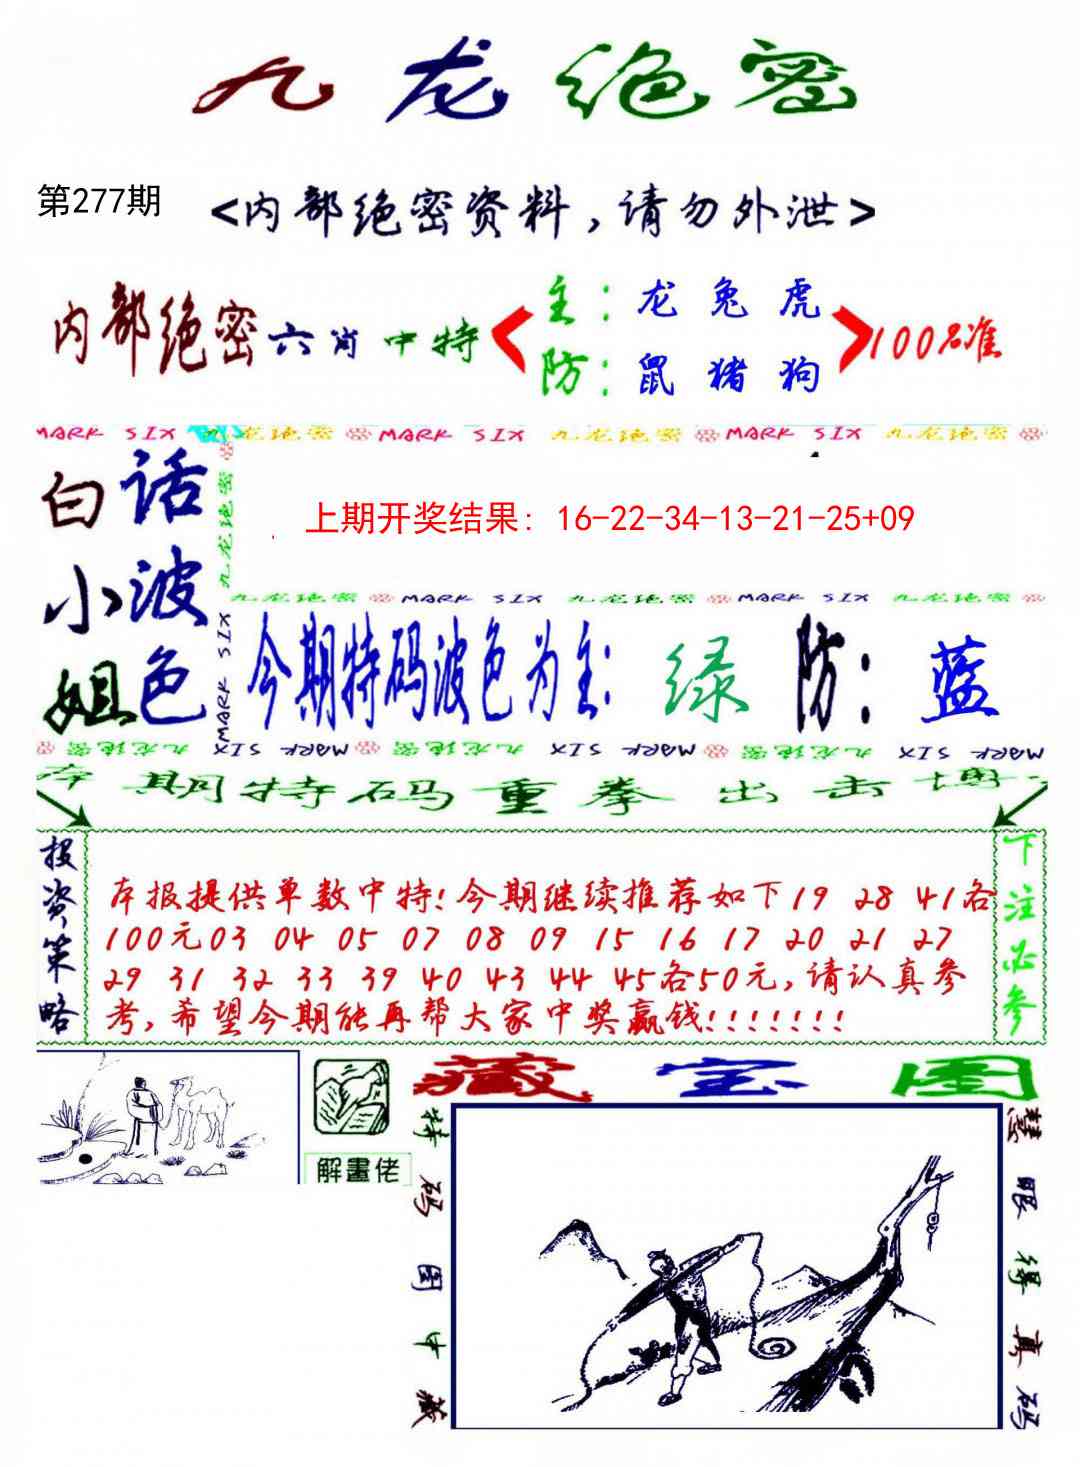 九龙绝密
第277期
<内部绝密资料,请勿外泄>
内部绝密六肖中特
主:龙兔虎
防:鼠猪狗
100%准
MARK SIX 九龙绝密 MARK SIX 九龙绝密 MARK SIX 九龙绝密
白小姐
话波色
九龙绝密 MARK SIX
上期开奖结果: 16-22-34-13-21-25+09
九龙绝密 MARK SIX 九龙绝密 MARK SIX 九龙绝密
今期特码波色为主: 绿 防: 蓝
九龙绝密 MARK SIX 九龙绝密 MARK SIX 九龙绝密 MARK SIX
本期特码重拳出击博
投资策略
本报提供单数中特!今期继续推荐如下19 28 41各
100元03 04 05 07 08 09 15 16 17 20 21 27
29 31 32 33 39 40 43 44 45各50元,请认真参
考,希望今期能再帮大家中奖赢钱!!!!!!!
下注必参
解畫佬
藏宝图
特码图中藏
慧眼得真码